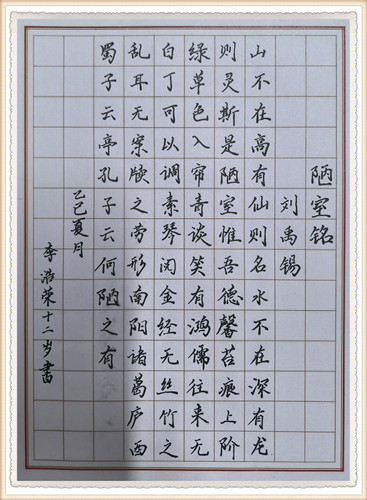 陋室铭
刘禹锡
山不在高有仙则名水不在深有龙
则灵斯是陋室惟吾德馨苔痕上阶
绿草色入帘青谈笑有鸿儒往来无
白丁可以调素琴阅金经无丝竹之
乱耳无案牍之劳形南阳诸葛庐西
蜀子云亭孔子云何陋之有
乙巳夏月
李浩荣十二岁书